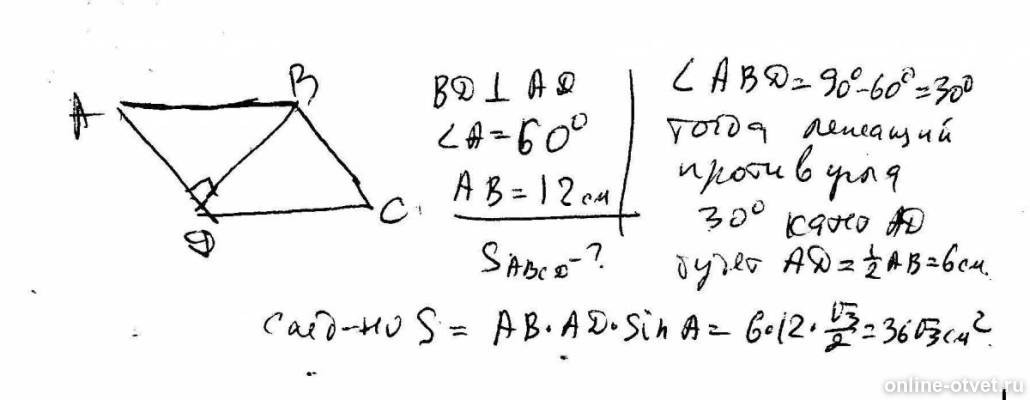 A
B
C
D
BD ⊥ AD
∠A=60°
AB=12см
S ABCD-?
∠ABD=90°-60°=30°
тогда лежащий
против угла
30° катет AD
будет AD=½AB=6см.
След-но S = AB·AD·sin A = 6·12·√3/2=36√3см²
online-otvet.ru